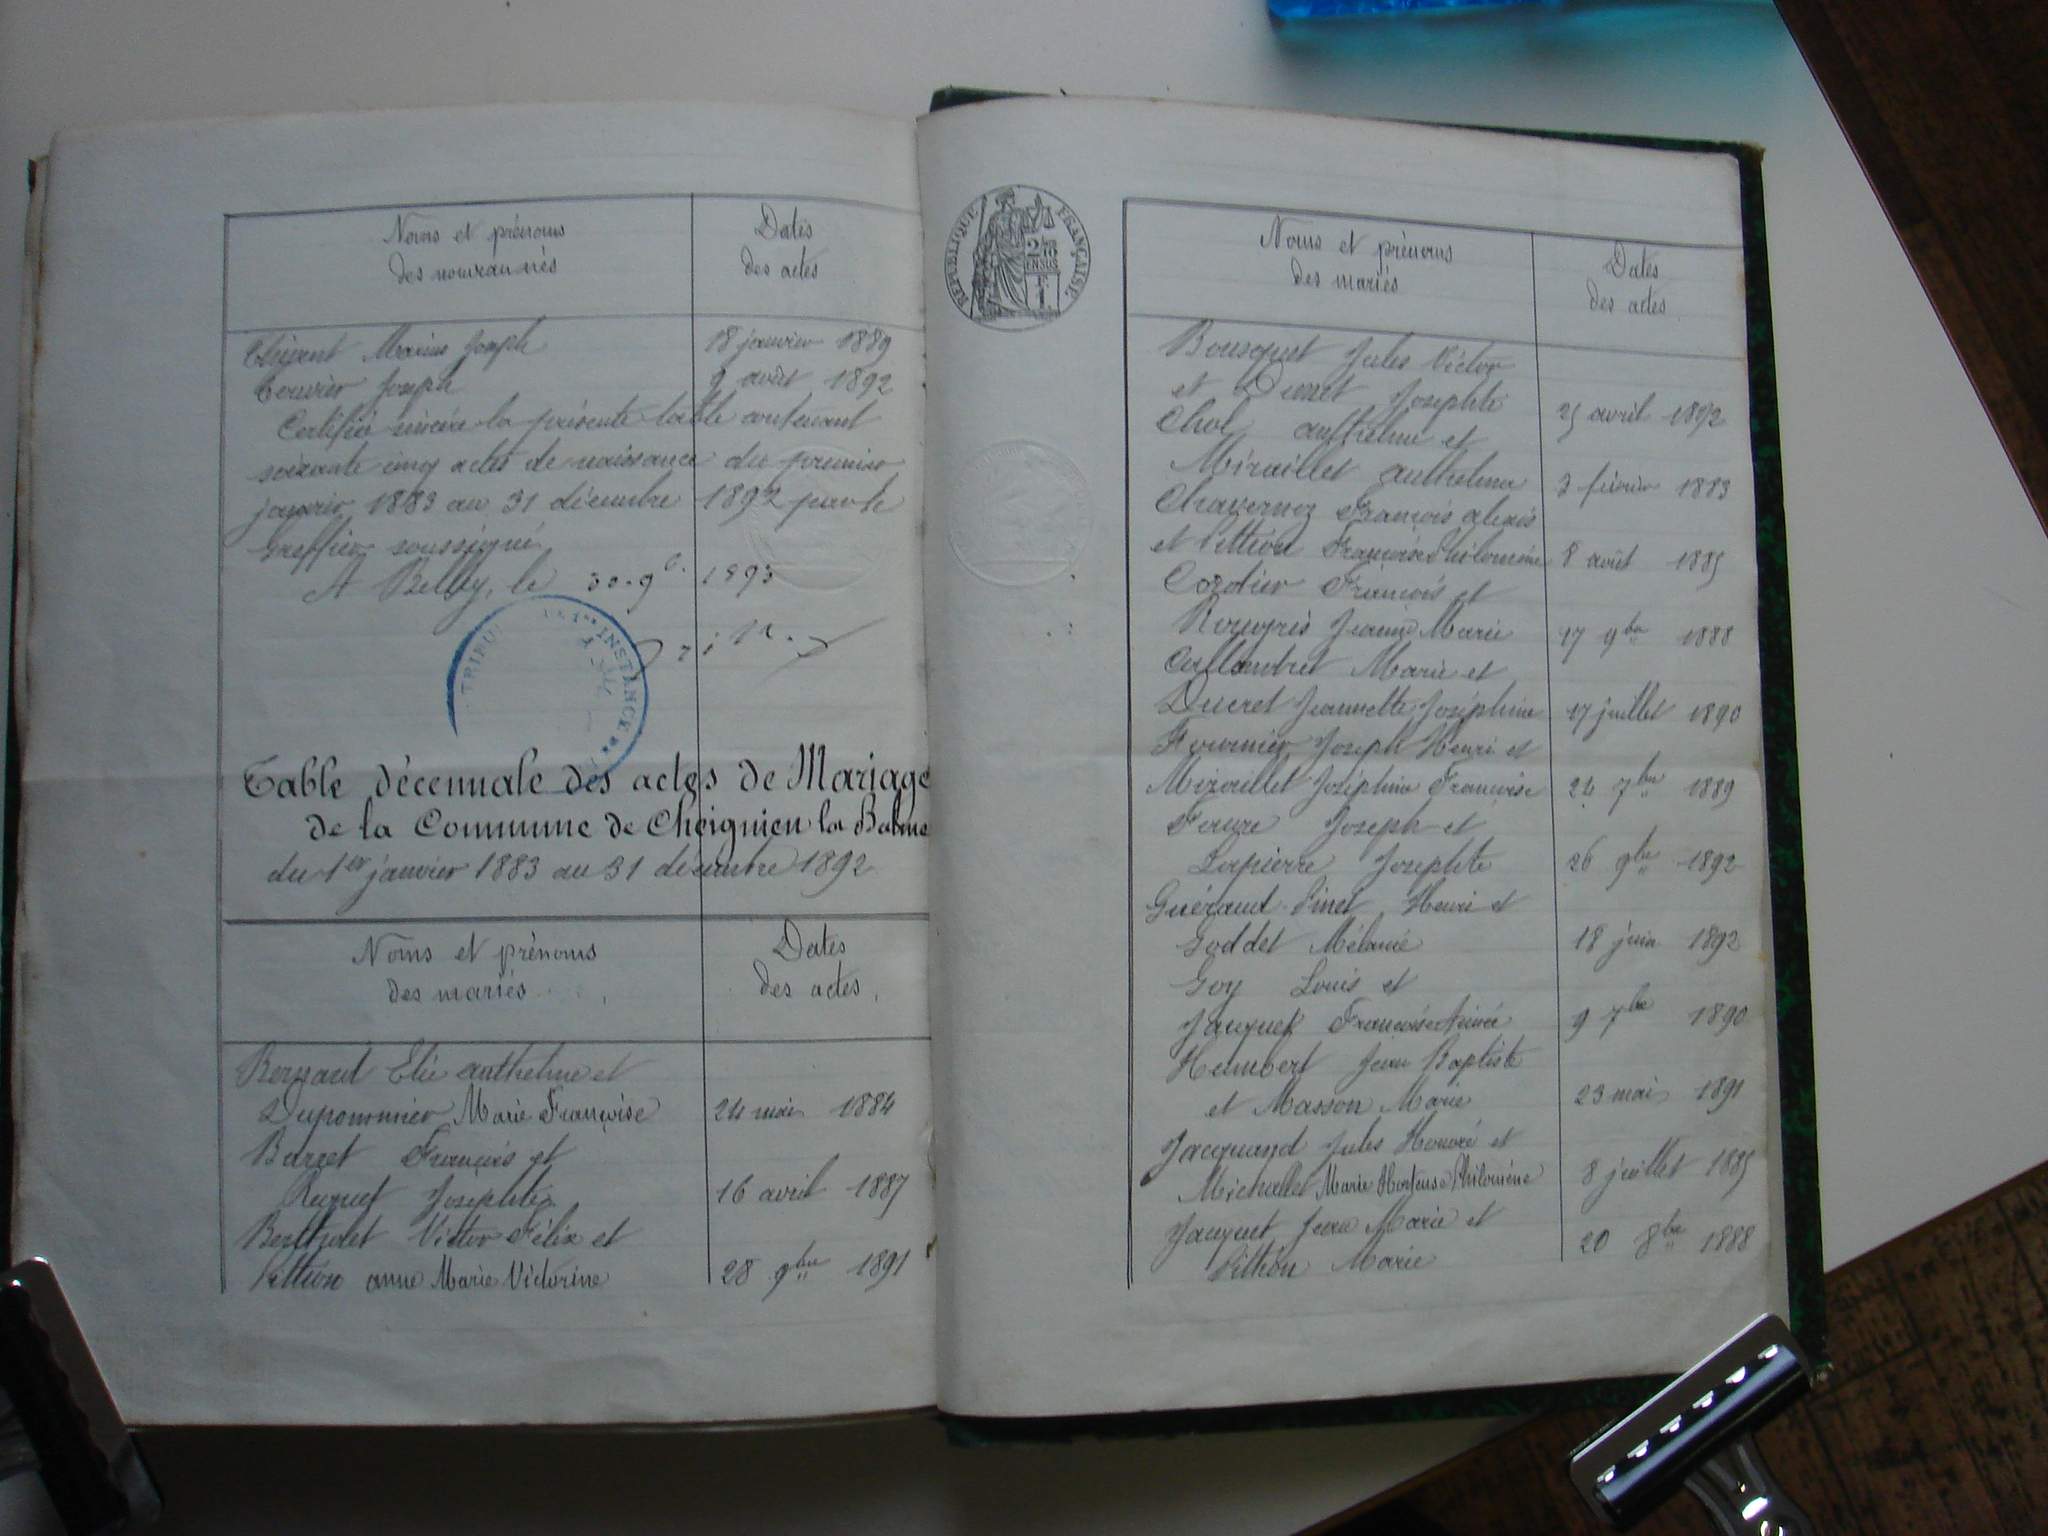 Noms et prénoms
des nouveau nés
Dates
des actes
Marius Joseph 18 janvier 1889
Joseph 9 août 1892
Certifié sincère la présente table contenant
soixante cinq actes de naissance du premier
janvier 1883 au 31 décembre 1892 par le
Greffier soussigné
A Belley, le 30 9b. 1893
TRIBUN 1re INSTANCE DE
Table décennale des actes de Mariage
de la Commune de Cheignieu la Balme
du 1er janvier 1883 au 31 décembre 1892
Noms et prénoms
des mariés
Dates
des actes
Bernard Elie anthelme et
Duponnnier Marie Françoise 24 mai 1884
Barret François et
Ruquet Josephte 16 avril 1887
Bertholet Victor Félix et
Pittion anne Marie Victorine 28 9bre 1891
RÉPUBLIQUE FRANÇAISE
2/10 EN SUS
1 F.
Noms et prénoms
des mariés
Dates
des actes
Bousquet Jules Victor
et Ducret Josephte 25 avril 1892
Chol anthelme et
Miraillet anthelma 3 février 1883
Chavernoz François alexis
et Pittion Françoise Philomène 8 août 1885
Cordier François et
Rougris Jeanne Marie 17 9bre 1888
Callandret Marie et
Ducret Jeannette Joséphine 17 juillet 1890
Fournier Joseph Henri et
Miraillet Joséphine Françoise 24 7bre 1889
Feure Joseph et
Lapierre Josephte 26 9bre 1892
Guéraud-Pinet Henri et
Goddet Mélanie 18 juin 1892
Goy Louis et
Jacquet Françoise Aimée 9 7bre 1890
Humbert Jean Baptiste
et Masson Marie 23 mai 1891
Jacquand Jules Honoré et
Michallet Marie Hortense Philomène 8 juillet 1885
Jacquet Jean Marie et
Pittion Marie 20 8bre 1888